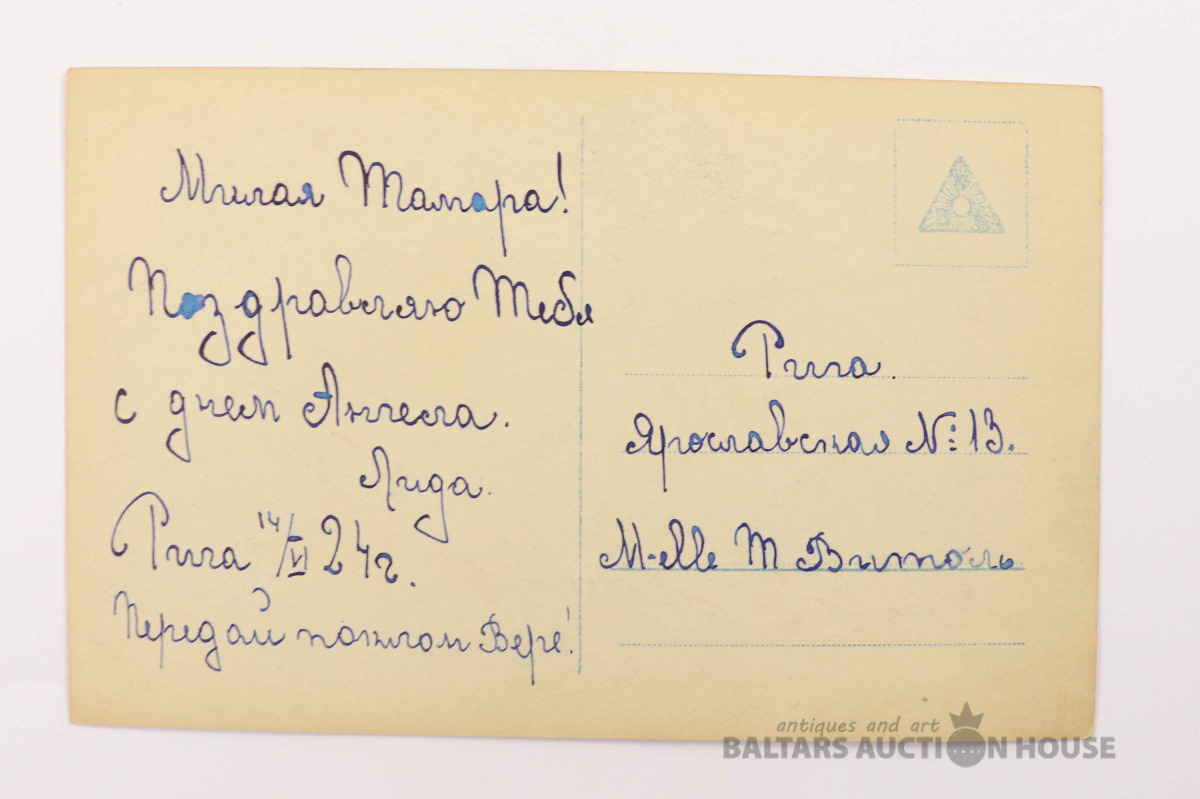 Милая Тамара!
Поздравляю Тебя
с днем Ангела.
Лида.
Рига 14/VI 24 г.
Передай поклон Вере!
Рига.
Ярославская №: 13.
M-elle Т Витоль
antiques and art
BALTARS AUCTION HOUSE